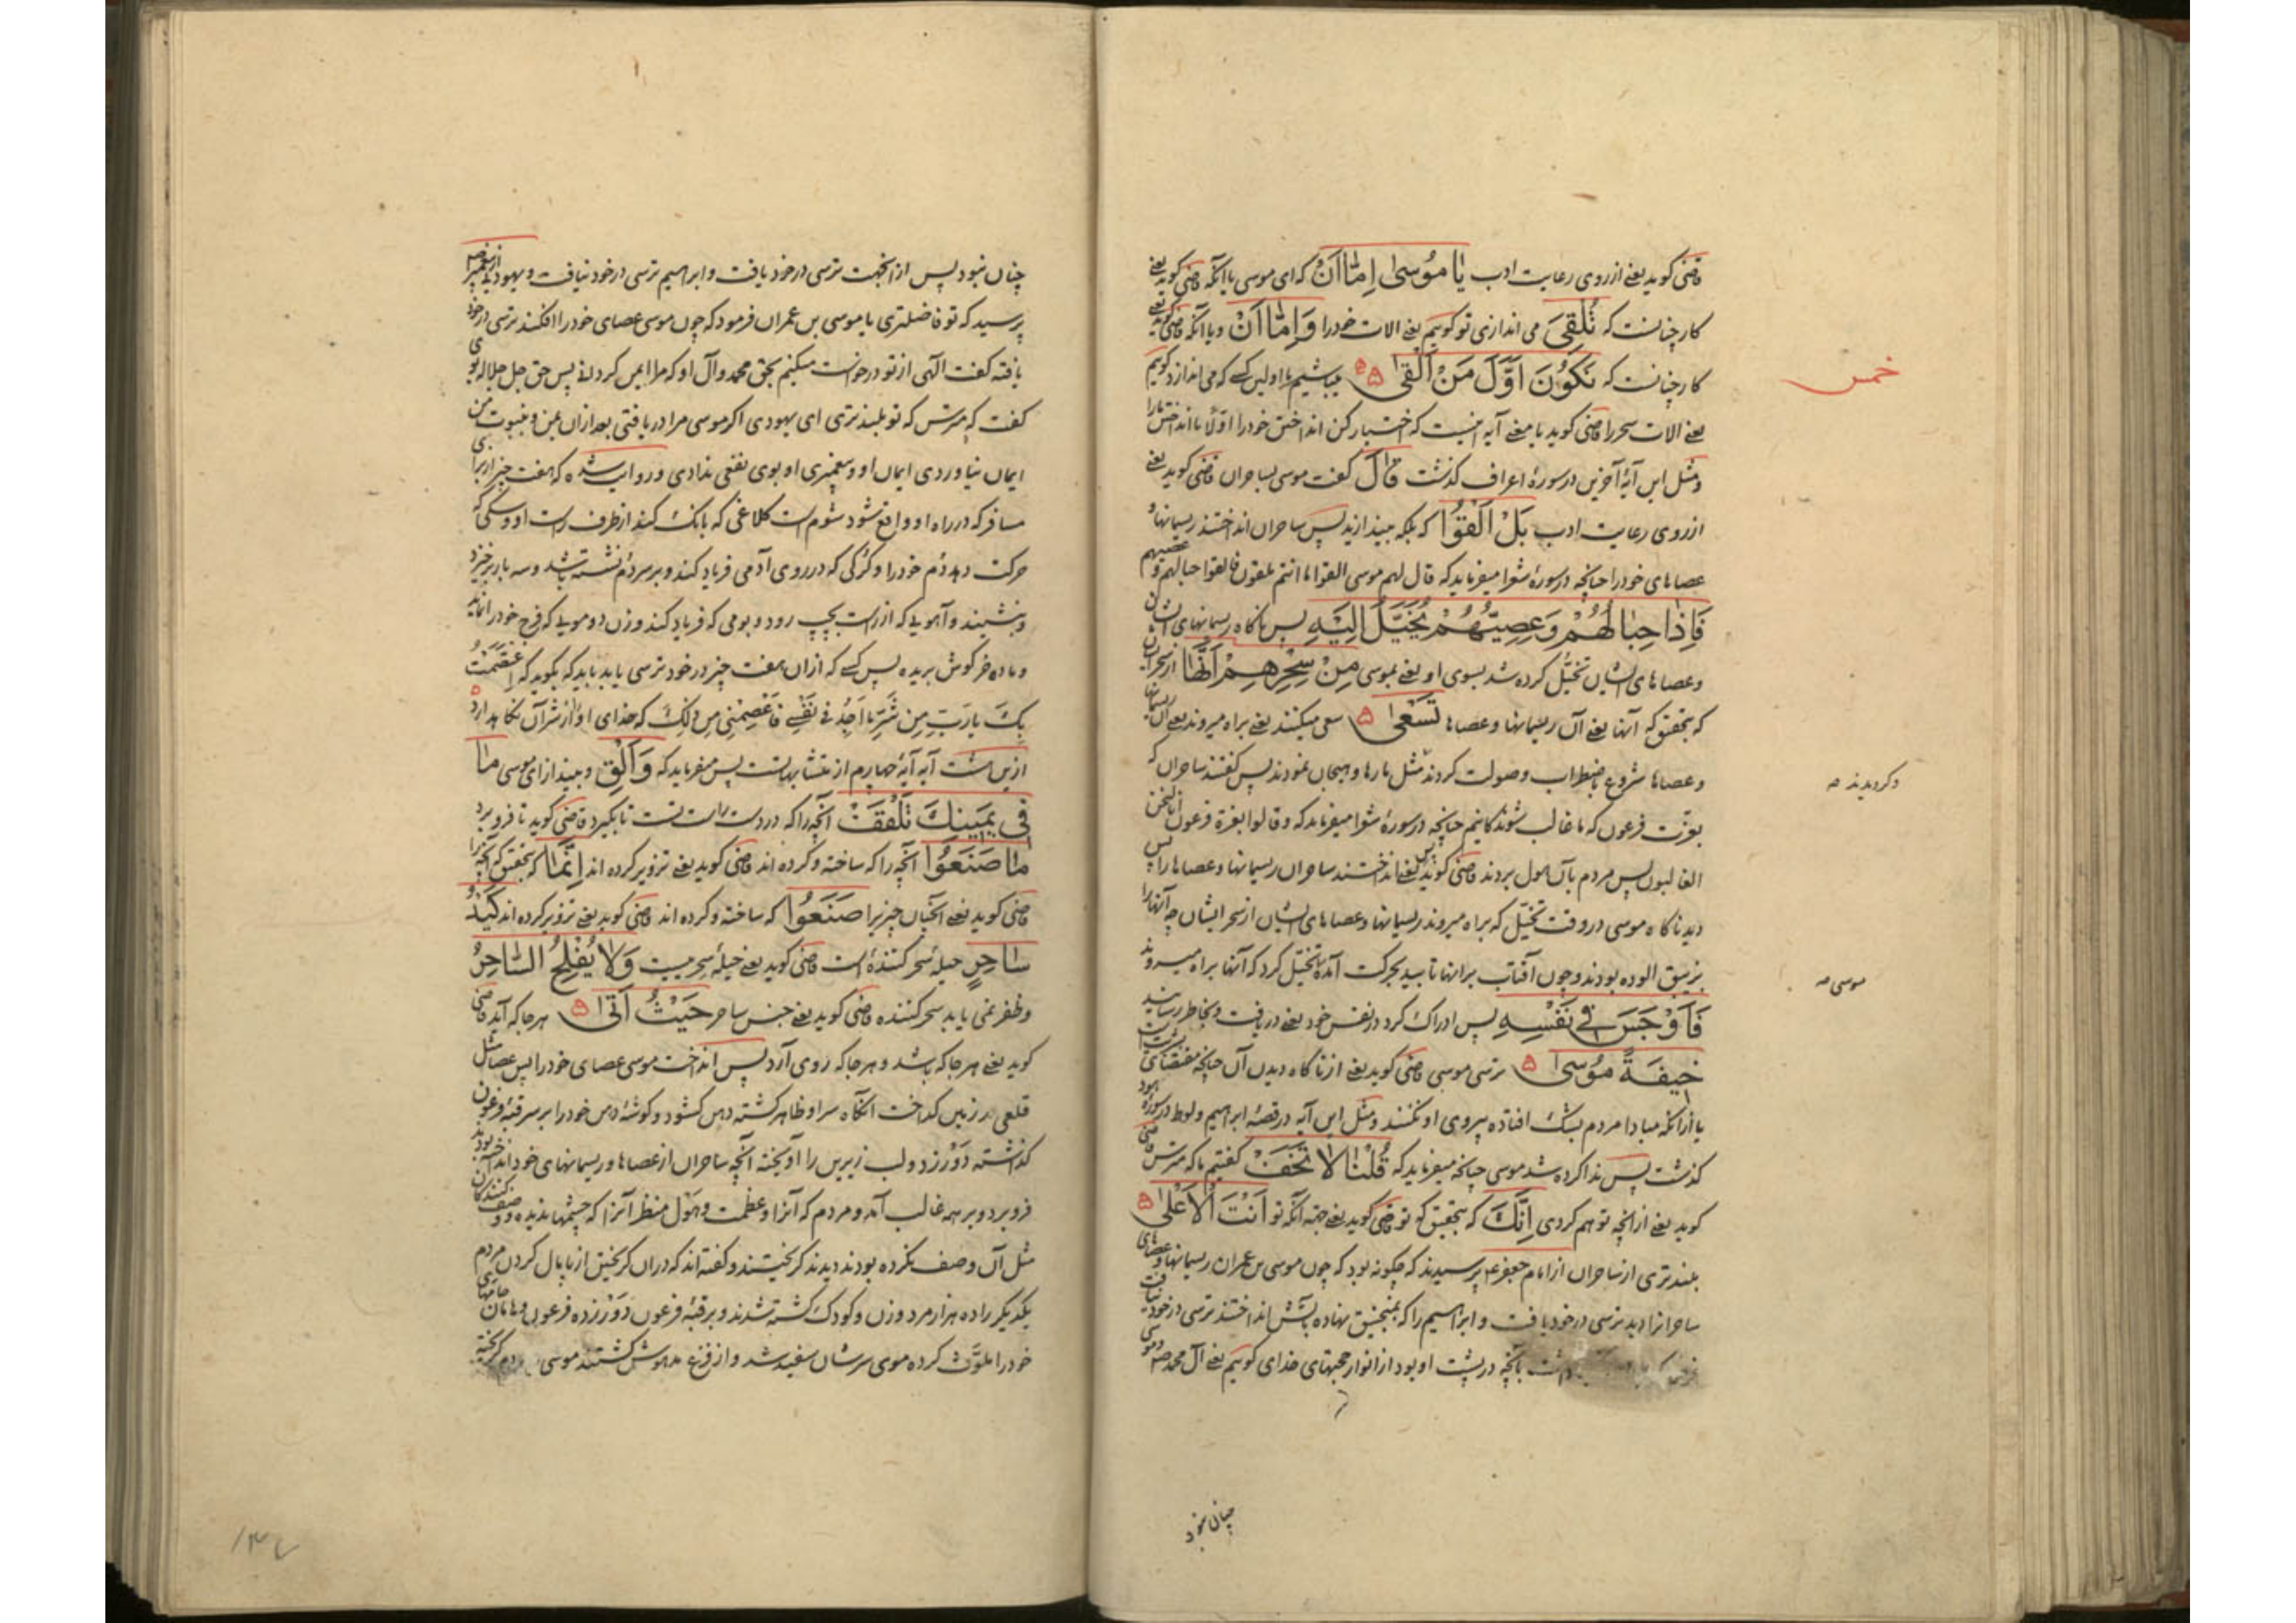 قاضی کوید یعنے از روی رعایت ادب یٰا مُوسیٰ اِمّٰا اَنْ که ای موسی یا آنکه قاضی کوید یعنے
کار چنانست که تُلْقِیَ می اندازی تو کوییم یعنے الات خود را وَاِمّٰا اَنْ و یا آنکه قاضی کوید یعنے
کار چنانست که نَکُوْنَ اَوَّلَ مَنْ اَلْقیٰ ۵ میباشیم ما اولین کسے که می اندازد کوییم
یعنے الات سحر را قاضی کوید یا معنے آیه اینست که اختیار کن انداختن خود را اوّلا یا انداختن ما را
و مثل این آیۀ آخرین در سورۀ اعراف کذشت قٰالَ کفت موسی بساحران قاضی کوید یعنے
از روی رعایت ادب بَلْ اَلْقُوْا که بلکه بیندازید پس ساحران انداختند ریسمانها و
عصاهای خود را چنانچه در سورۀ شعرا میفرماید که قال لهم موسی القوا ما انتم ملقون فالقوا حبالهم و عصیهم
فَاِذٰا حِبٰالُهُمْ وَعِصِیُّهُمْ یُخَیَّلُ اِلَیْهِ پس ناکاه ریسمانهای ایشان
و عصاهای ایشان تخیّل کرده شد بسوی او یعنے بموسی مِنْ سِحْرِهِمْ اَنَّهٰا از سحر ایشان
که بتحقیق که آنها یعنے آن ریسمانها و عصاها تَسْعیٰ ۵ سعی میکنند یعنے براه میروند یعنے آن ریسمانها
و عصاها شروع باضطراب و صولت کردند مثل مارها و هیجان نمودند پس کفتند ساحران که
بعزّت فرعون که ما غالب شوندکانیم چنانچه در سورۀ شعرا میفرماید که و قالوا بعزة فرعون انا لنحن
الغالبون پس مردم بآن هول بردند قاضی کوید یعنے انداختند ساحران ریسمانها و عصاها را پس
دید ناکاه موسی در وقت تخیّل که براه میروند ریسمانها و عصاهای ایشان از سحر ایشان چه آنها را
بزیبق الوده بودند و چون آفتاب برانها تابید بحرکت آمده تخیّل کرد که آنها براه میروند
فَاَوْجَسَ فِیْ نَفْسِهِ پس ادراک کرد در نفس خود یعنے دریافت و بخاطر رسانید
خِیفَةً مُوْسیٰ ۵ ترسی موسی قاضی کوید یعنے از ناکاه دیدن آن چنانچه مقتضای بشریت است
یا از انکه مبادا مردم بشک افتاده پیروی او نکنند و مثل این آیه در قصۀ ابراهیم و لوط در سورۀ هود
کذشت پس ندا کرده شد موسی چنانچه میفرماید که قُلْنٰا لاٰ تَخَفْ کفتیم ما که مترس قاضی
کوید یعنے از انچه توهم کردی اِنَّکَ که بتحقیق که تو قاضی کوید یعنے جهة آنکه تو اَنْتَ الْاَعْلیٰ ۵
بلندتری از ساحران از امام جعفر ع پرسیدند که چکونه بود که چون موسی بن عمران ریسمانها و عصاهای
ساحرانرا دید ترسی در خود یافت و ابراهیم را که بمنجنیق نهاده بآتش انداختند ترسی در خود نیافت
داشت بآنچه در پشت او بود از انوار حجتهای خدای کوییم یعنے آل محمد ص و موسی
خمس
و کرویدند صه
موسی صه
چنان نبود
چنان نبود پس از انجهت ترسی در خود یافت و ابراهیم ترسی در خود نیافت و یهودیی از پیغمبر ص
پرسید که تو فاضلتری یا موسی بن عمران فرمود که چون موسی عصای خود را افکند ترسی در خود
یافته کفت الٓهی از تو درخواست میکنم بحق محمد و آل او که مرا ایمن کردانی پس حق جل جلاله بوی
کفت که مترس که تو بلندتری ای یهودی اکر موسی مرا دریافتی بعد از ان بمن و بنبوت من
ایمان نیاوردی ایمان او و پیغمبری او بوی نفعی ندادی و روایت شده که هفت چیز از برای
مسافر که در راه او واقع شود شوم است کلاغی که بانک کند از طرف راست او و سکی که
حرکت دهد دُم خود را و کرکی که در روی آدمی فریاد کند و بر سر دُم نشسته باشد و سه بار برخیزد
و بنشیند و آهویی که از راست بچپ رود و بومی که فریاد کند و زن دو مویی که فرج خود را نماید
و ماده خر کوش بریده پس کسے که از ان هفت چیز در خود ترسی یابد باید که بکوید که اِعْتَصَمْتُ
بِکَ یارَبِّ مِن شَرِّ ما اَجِدُ فی نَفْسِے فَاعْصِمْنِی مِن ذٰلِکَ که خدای او را از شر آن نکاه دارد ۵
ازین هشت آیه آیۀ چهارم از متشابهاتست پس میفرماید که وَاَلْقِ و بینداز ای موسی مٰا
فِی یَمِینِکَ تَلْقَفْ آنچه را که در دست راست تست تا بکیرد قاضی کوید تا فرو برد
مٰا صَنَعُوْا آنچه را که ساخته و کرده اند قاضی کوید یعنے تزویر کرده اند اِنَّمٰا که بتحقیق که آنچه را
قاضی کوید یعنے آنچنان چیزیرا صَنَعُوْا که ساخته و کرده اند قاضی کوید یعنے تزویر کرده اند کَیْدُ
سٰاحِرٍ حیلۀ سحر کننده است قاضی کوید یعنے حیلۀ سحریست وَلاٰ یُفْلِحُ السّٰاحِرُ
و ظفر نمی یابد سحر کننده قاضی کوید یعنے جنس ساحر حَیْثُ اَتیٰ ۵ هر جا که آید قاضی
کوید یعنے هر جا که باشد و هر جا که روی آرد پس انداخت موسی عصای خود را پس عصا مثل
قلعی در زمین کداخت انکاه سر او ظاهر کشته دهن کشود و کوشۀ دهن خود را بر سر قبۀ فرعون
کذاشته دَوْر زد و لب زیرین را آویخته آنچه ساحران از عصاها و ریسمانهای خود انداخته بودند
فرو برد و بر همه غالب آمد و مردم که آنرا و عظمت و هَوْل منظر آنرا که چشمها ندیده و وصف کنندکان
مثل آن وصف نکرده بودند دیدند کریختند و کفته اند که در ان کریختن از پایمال کردن مردم
یکدیکر را ده هزار مرد و زن و کودک کشته شدند و بر قبۀ فرعون دَوْر زده فرعون و هامان جامهای
خود را ملوّث کرده موی سرشان سفید شد و از فزع مدهوش کشتند موسی